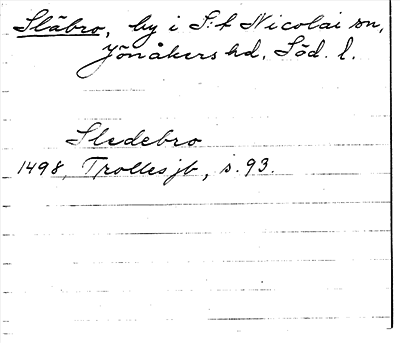 Släbro, by i S:t Nicolai sn,
Jönåkers hd, Söd. l.
Sledebro
1498, Trolles jb, s. 93.